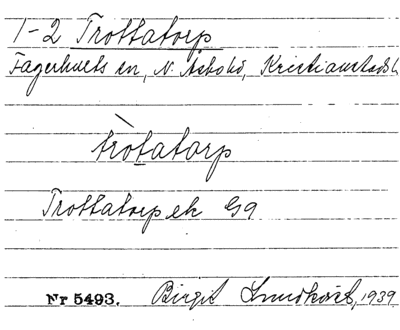 1-2 Trottatorp
Fagerhults sn, N. Åsbo hd, Kristianstads l.
tròtatorp
Trottatorp ek G9
Nr 5493. Birgit Lundkvist, 1939